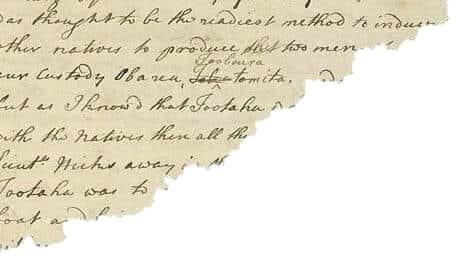 as thought to be the readiest method to induce
other natives to produce the two men
Tooboura
our Custody Obarea, tomita,
but as I know'd that Tootaha
with the Natives then all the
Lieut.t Hicks away in th
Tootaha was to
boat and